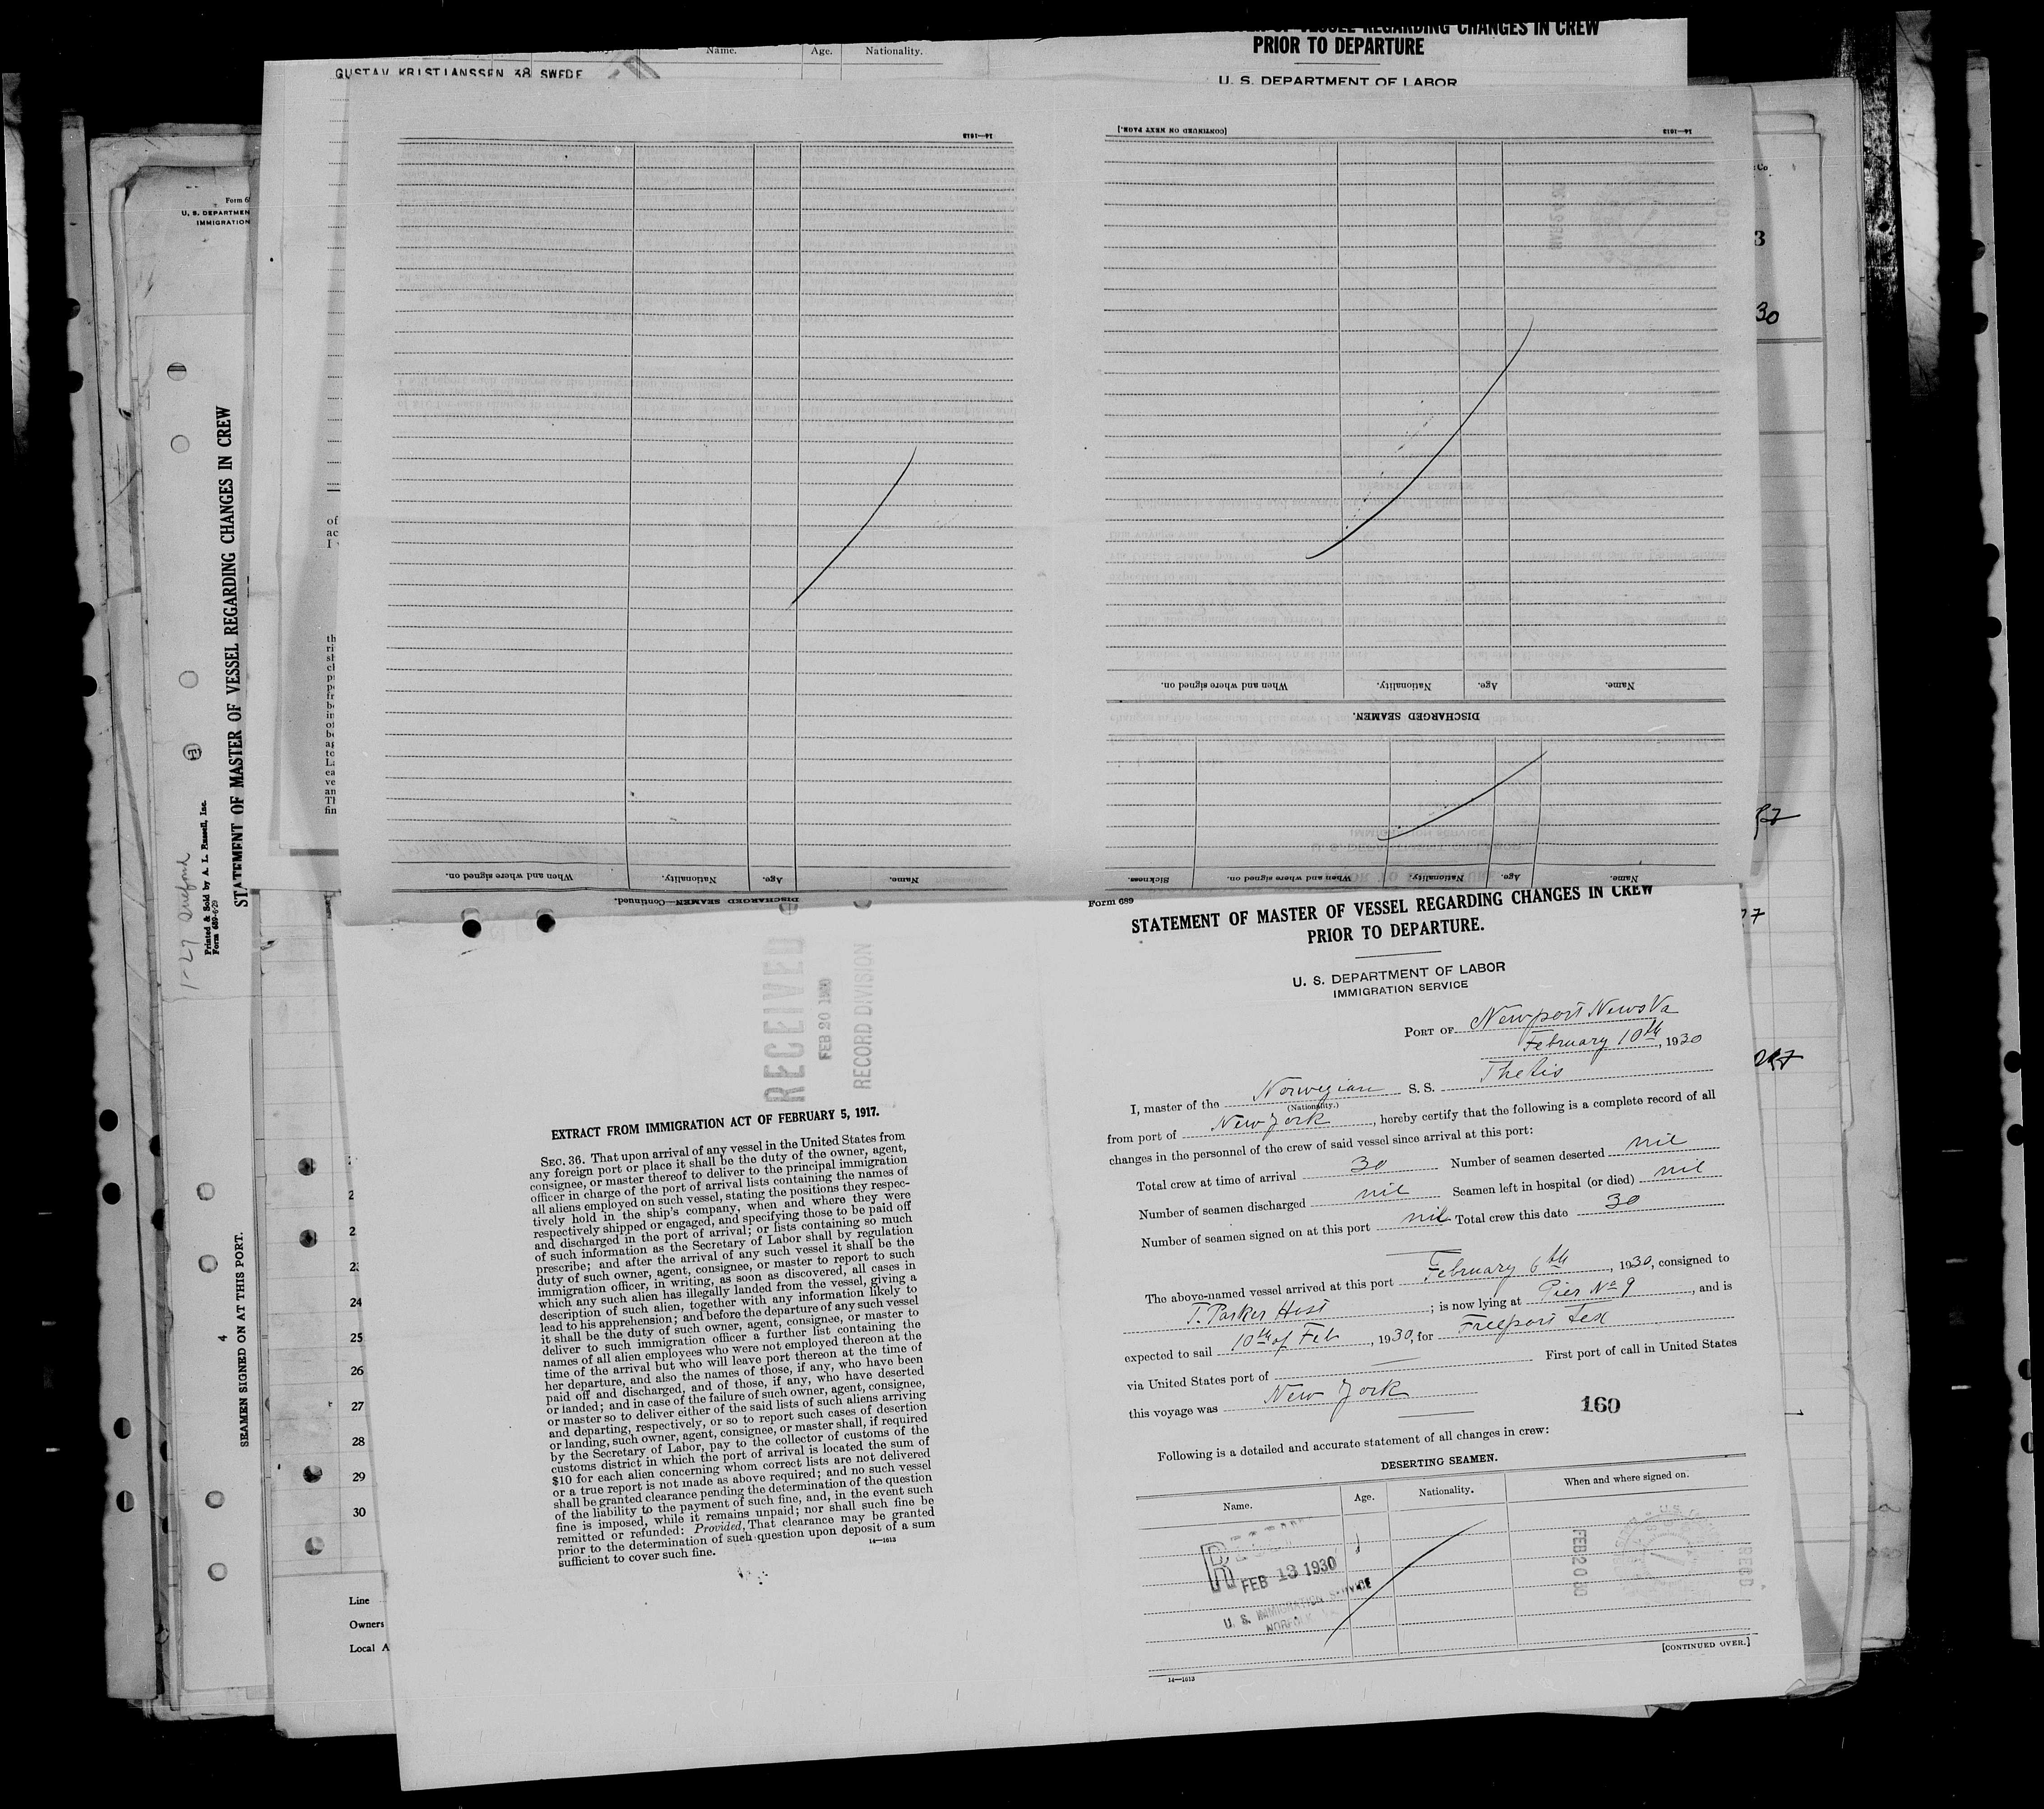 Name. Age. Nationality.
GUSTAV KRISTIANSSEN 38 SWEDE
OF VESSEL REGARDING CHANGES IN CREW
PRIOR TO DEPARTURE
U. S. DEPARTMENT OF LABOR
14—1613
[CONTINUED ON NEXT PAGE.] 14—1613
When and where signed on. Nationality. Age. Name.
DISCHARGED SEAMEN.
Sickness. When and where signed on. Nationality. Age. Name.
When and where signed on. Nationality. Age. Name.
DISCHARGED SEAMEN—Continued.
Form 6
U. S. DEPARTMEN
IMMIGRATION
STATEMENT OF MASTER OF VESSEL REGARDING CHANGES IN CREW
Printed & Sold by A. L. Russell, Inc.
Form 689-6-29
1-27
4
SEAMEN SIGNED ON AT THIS PORT.
30
24
25
26
27
28
29
30
Line
Owners
Local A
RECEIVED
FEB 20 1930
RECORD DIVISION
EXTRACT FROM IMMIGRATION ACT OF FEBRUARY 5, 1917.
SEC. 36. That upon arrival of any vessel in the United States from
any foreign port or place it shall be the duty of the owner, agent,
consignee, or master thereof to deliver to the principal immigration
officer in charge of the port of arrival lists containing the names of
all aliens employed on such vessel, stating the positions they respec-
tively hold in the ship's company, when and where they were
respectively shipped or engaged, and specifying those to be paid off
and discharged in the port of arrival; or lists containing so much
of such information as the Secretary of Labor shall by regulation
prescribe; and after the arrival of any such vessel it shall be the
duty of such owner, agent, consignee, or master to report to such
immigration officer, in writing, as soon as discovered, all cases in
which any such alien has illegally landed from the vessel, giving a
description of such alien, together with any information likely to
lead to his apprehension; and before the departure of any such vessel
it shall be the duty of such owner, agent, consignee, or master to
deliver to such immigration officer a further list containing the
names of all alien employees who were not employed thereon at the
time of the arrival but who will leave port thereon at the time of
her departure, and also the names of those, if any, who have been
paid off and discharged, and of those, if any, who have deserted
or landed; and in case of the failure of such owner, agent, consignee,
or master so to deliver either of the said lists of such aliens arriving
and departing, respectively, or so to report such cases of desertion
or landing, such owner, agent, consignee, or master shall, if required
by the Secretary of Labor, pay to the collector of customs of the
customs district in which the port of arrival is located the sum of
$10 for each alien concerning whom correct lists are not delivered
or a true report is not made as above required; and no such vessel
shall be granted clearance pending the determination of the question
of the liability to the payment of such fine, and, in the event such
fine is imposed, while it remains unpaid; nor shall such fine be
remitted or refunded: Provided, That clearance may be granted
prior to the determination of such question upon deposit of a sum
sufficient to cover such fine.
14—1613
Form 689
STATEMENT OF MASTER OF VESSEL REGARDING CHANGES IN CREW
PRIOR TO DEPARTURE.
U. S. DEPARTMENT OF LABOR
IMMIGRATION SERVICE
PORT OF Newport News Va
February 10th, 1930
I, master of the Norwegian S. S. Thetis
(Nationality.)
from port of New York, hereby certify that the following is a complete record of all
changes in the personnel of the crew of said vessel since arrival at this port:
Total crew at time of arrival 30 Number of seamen deserted nil
Number of seamen discharged nil Seamen left in hospital (or died) nil
Number of seamen signed on at this port nil Total crew this date 30
The above-named vessel arrived at this port February 6th, 1930, consigned to
T. Parker Host; is now lying at Pier No 9, and is
expected to sail 10th of Feb, 1930, for Freeport Tex
via United States port of — First port of call in United States
this voyage was New York
160
Following is a detailed and accurate statement of all changes in crew:
DESERTING SEAMEN.
Name. Age. Nationality. When and where signed on.
FEB 13 1930
U. S. IMMIGRATION SERVICE
NORFOLK
FEB 20 30
REC'D
[CONTINUED OVER.]
14—1613